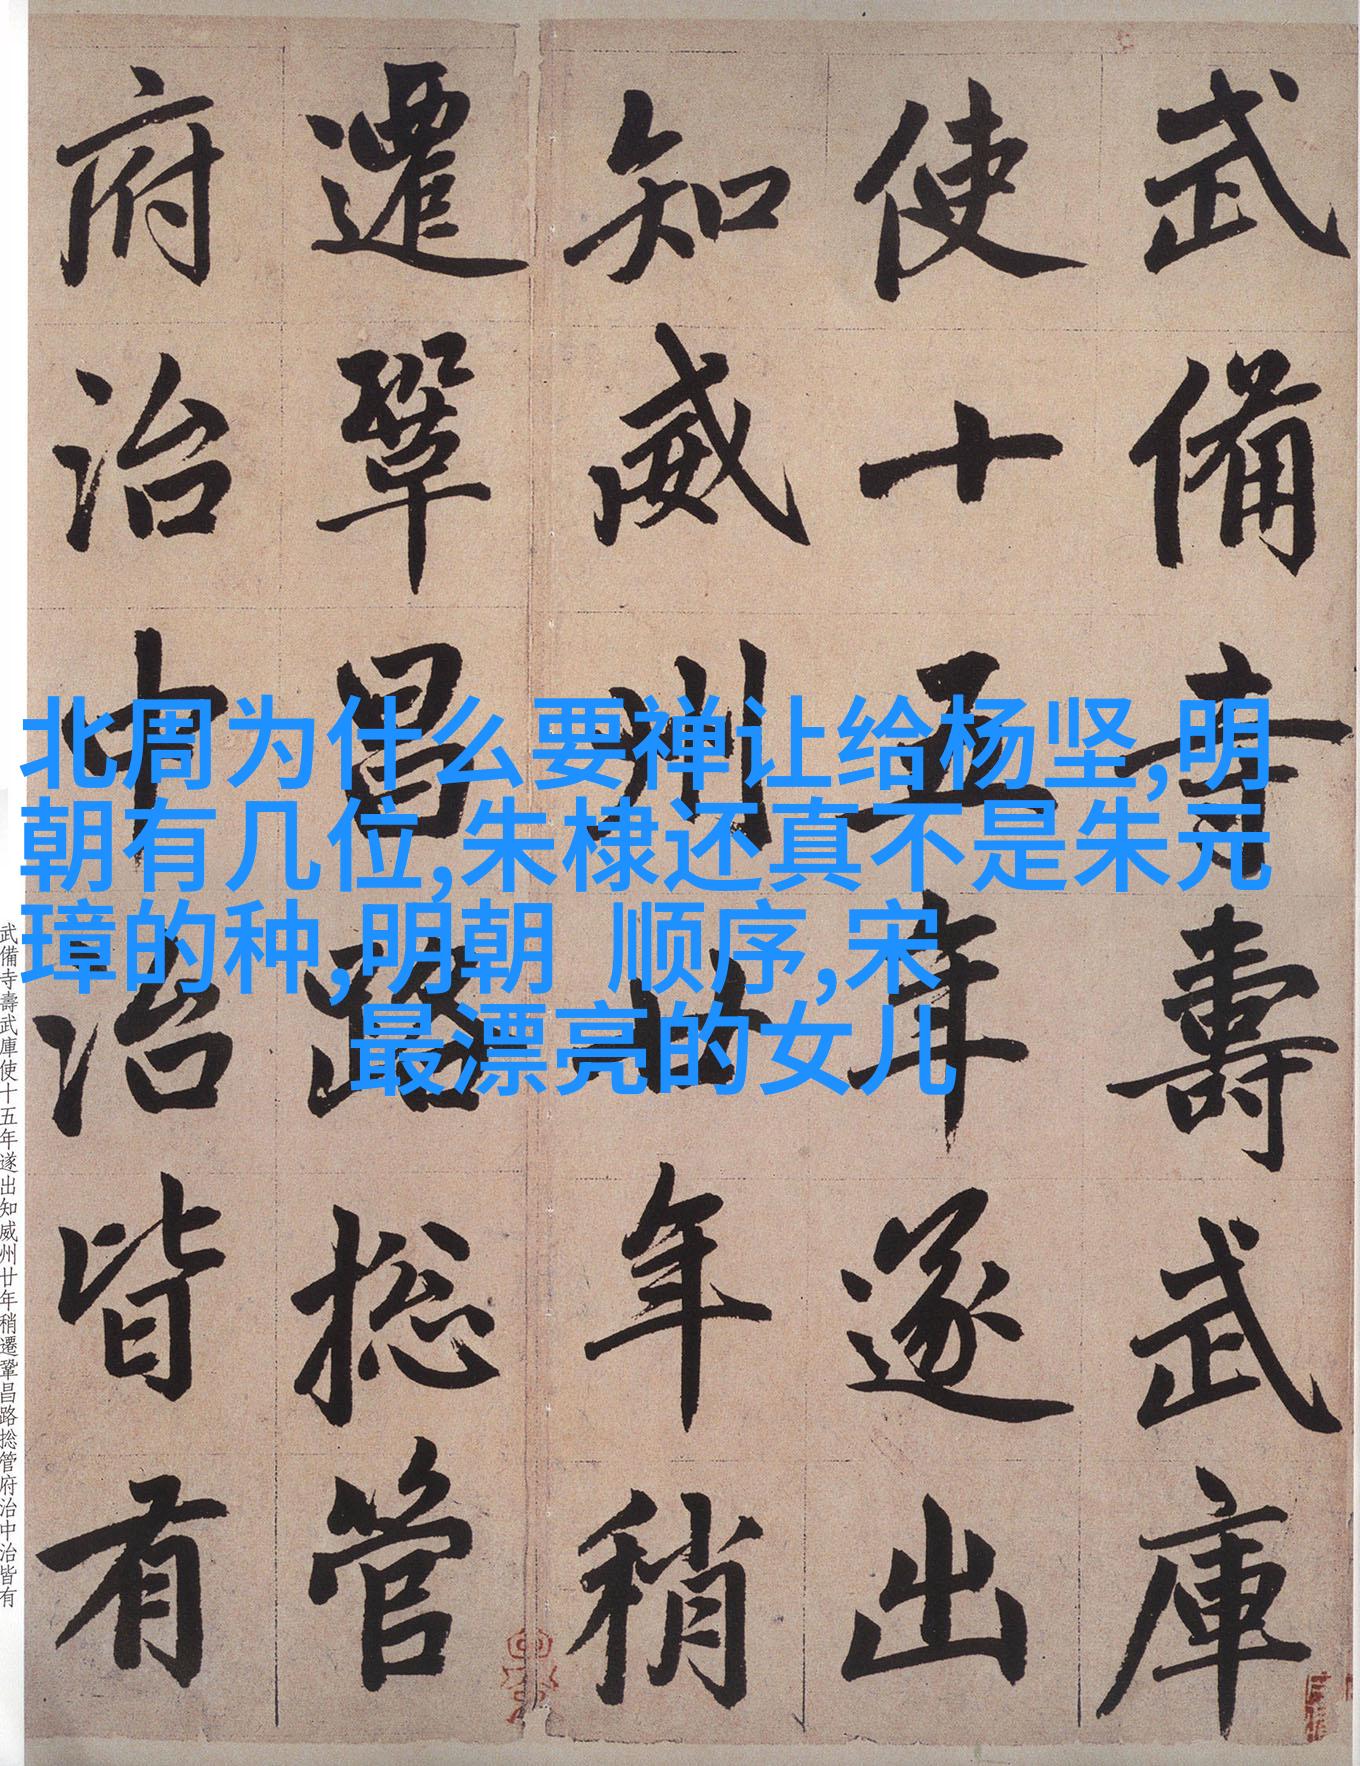 武備寺壽武庫
使十五年遂出
知威州廿年稍
遷鞏昌路捴管
府治中治皆有
北周为什么要禅让给杨坚,明
朝有几位,朱棣还真不是朱元
璋的种,明朝 顺序,宋
最漂亮的女儿
武備寺壽武庫使十五年遂出知威州廿年稍遷鞏昌路捴管府治中治皆有